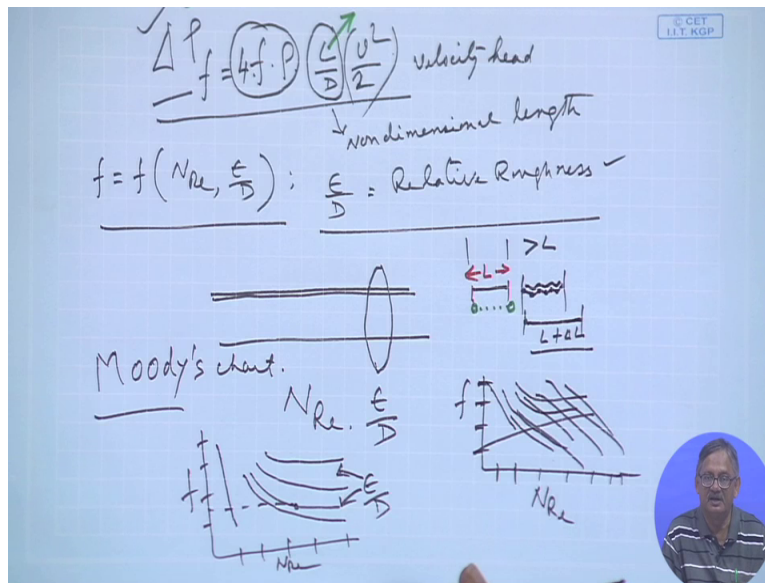 © CET
I.I.T. KGP
ΔP_f = 4.f.ρ (L/D)(U²/2) velocity head
Nondimensional length
f = f(N_Re, ε/D) : ε/D = Relative Roughness
L > L
L + ΔL
Moody's chart.
N_Re . ε/D
f
f ε/D
N_Re
N_Re